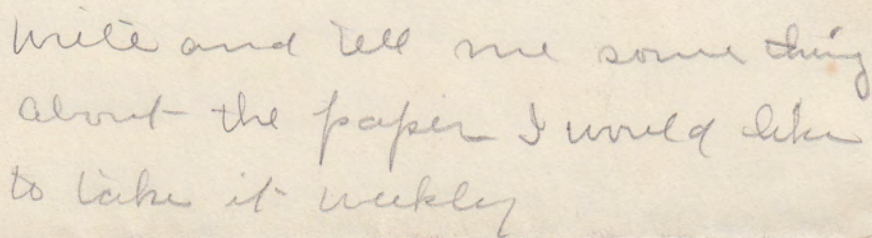 write and tell me some thing
about the paper I would like
to take it weekly